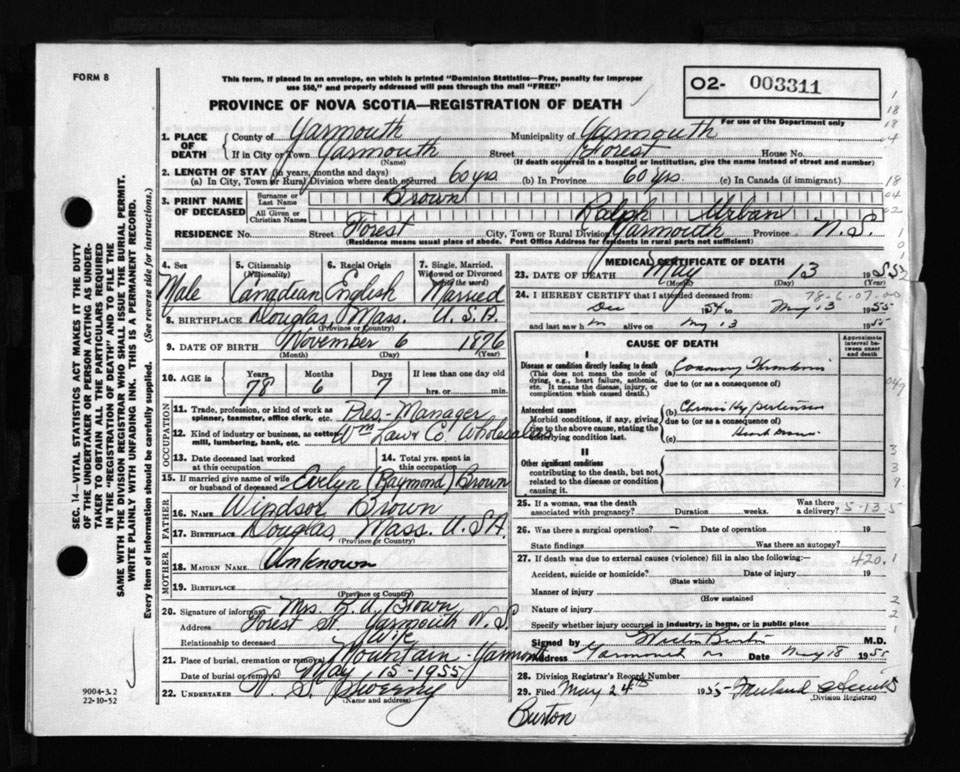 FORM 8
This form, if placed in an envelope, on which is printed "Dominion Statistics—Free, penalty for improper
use $50," and properly addressed will pass through the mail "FREE"
PROVINCE OF NOVA SCOTIA—REGISTRATION OF DEATH
O2- 003311
For use of the Department only
1. PLACE OF DEATH County of Yarmouth Municipality of Yarmouth
If in City or Town Yarmouth Street Forest House No.
(Name) (If death occurred in a hospital or institution, give the name instead of street and number)
2. LENGTH OF STAY (in years, months and days)
(a) In City, Town or Rural Division where death occurred 60 yrs (b) In Province 60 yrs (c) In Canada (if immigrant)
3. PRINT NAME OF DECEASED Surname or Last Name Brown
All Given or Christian Names Ralph Urban
RESIDENCE No. Street Forest City, Town or Rural Division Yarmouth Province N.S.
(Residence means usual place of abode. Post Office Address for residents in rural parts not sufficient)
4. Sex 5. Citizenship (Nationality) 6. Racial Origin 7. Single, Married, Widowed or Divorced (Write the word)
Male Canadian English Married
8. BIRTHPLACE Douglas, Mass. U.S.A.
(Province or Country)
9. DATE OF BIRTH November 6 1876
(Month) (Day) (Year)
10. AGE in Years Months Days If less than one day old
78 6 7 hrs. or min.
OCCUPATION
11. Trade, profession, or kind of work as spinner, teamster, office clerk, etc. Pres-Manager
12. Kind of industry or business, as cotton mill, lumbering, bank, etc. Wm Law & Co. Wholesaler
13. Date deceased last worked at this occupation 14. Total yrs. spent in this occupation
15. If married give name of wife or husband of deceased Evelyn (Raymond) Brown
FATHER
16. NAME Windsor Brown
17. BIRTHPLACE Douglas, Mass. U.S.A.
(Province or Country)
MOTHER
18. MAIDEN NAME Unknown
19. BIRTHPLACE
(Province or Country)
20. Signature of informant Mrs. R.U. Brown
Address Forest St. Yarmouth N.S.
Relationship to deceased Wife
21. Place of burial, cremation or removal Mountain - Yarmouth
Date of burial or removal May 15-1955
22. UNDERTAKER V. S. Sweeny
(Name and address)
MEDICAL CERTIFICATE OF DEATH
23. DATE OF DEATH May 13 1955
(Month) (Day)
24. I HEREBY CERTIFY that I attended deceased from: 78-6-07-00
Dec 54 to May 13 1955
and last saw him alive on May 13 1955
CAUSE OF DEATH
Approximate interval between onset and death
I
Disease or condition directly leading to death
(This does not mean the mode of dying, e.g., heart failure, asthenia, etc. It means the disease, injury, or complication which caused death.)
(a) Coronary Thrombosis
due to (or as a consequence of)
Antecedent causes
Morbid conditions, if any, giving rise to the above cause, stating the underlying condition last.
(b) Chronic Hypertension
due to (or as a consequence of)
(c)
II
Other significant conditions
contributing to the death, but not related to the disease or condition causing it.
25. If a woman, was the death associated with pregnancy? Duration weeks. Was there a delivery? 5-13-5
26. Was there a surgical operation? — Date of operation 19
State findings Was there an autopsy?
27. If death was due to external causes (violence) fill in also the following: 420.1
Accident, suicide or homicide? Date of injury 19
(State which)
Manner of injury
(How sustained)
Nature of injury
Specify whether injury occurred in industry, in home, or in public place
Signed by Burton M.D.
Address Yarmouth NS Date May 18 1955
28. Division Registrar's Record Number
29. Filed May 24th 1955
(Division Registrar)
Burton
SEC. 14—VITAL STATISTICS ACT MAKES IT THE DUTY
OF THE UNDERTAKER OR PERSON ACTING AS UNDER-
TAKER TO OBTAIN ALL THE PARTICULARS REQUIRED
IN THE "REGISTRATION OF DEATH" AND TO FILE THE
SAME WITH THE DIVISION REGISTRAR WHO SHALL ISSUE THE BURIAL PERMIT.
WRITE PLAINLY WITH UNFADING INK. THIS IS A PERMANENT RECORD.
Every item of information should be carefully supplied. (See reverse side for instructions.)
9004-3.2
22-10-52